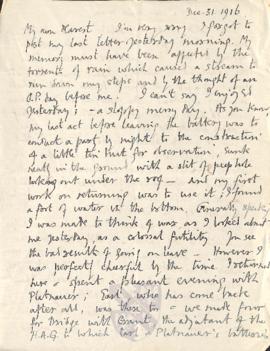 Dec. 31 1916
My own dearest I'm very sorry I forgot to
post my last letter yesterday morning. My
memory must have been affected by the
torrents of rain which caused a stream to
run down my steps and by the thought of an
O.P. day before me. I can't say I enjoyed
yesterday; - a sloppy merry day. As you know
my last act before leaving the battery was to
conduct a party by night to the construction
of a little tin hut for observation, sunk
in the ground with a bit of peep hole
looking out under the roof - and my first
work on returning was to use it; I found
a foot of water in the bottom. Generally speaking
I was made to think of war as I looked about
me yesterday, as a colossal futility. You see
the bad result of going on leave. However I
was perfectly cheerful by the time I returned
here & spent a pleasant evening with
Platnauer; who has come back
after all, was there too - we made four
for Bridge with Grant the adjutant of the
H.A.G. to which Platnauer's battery